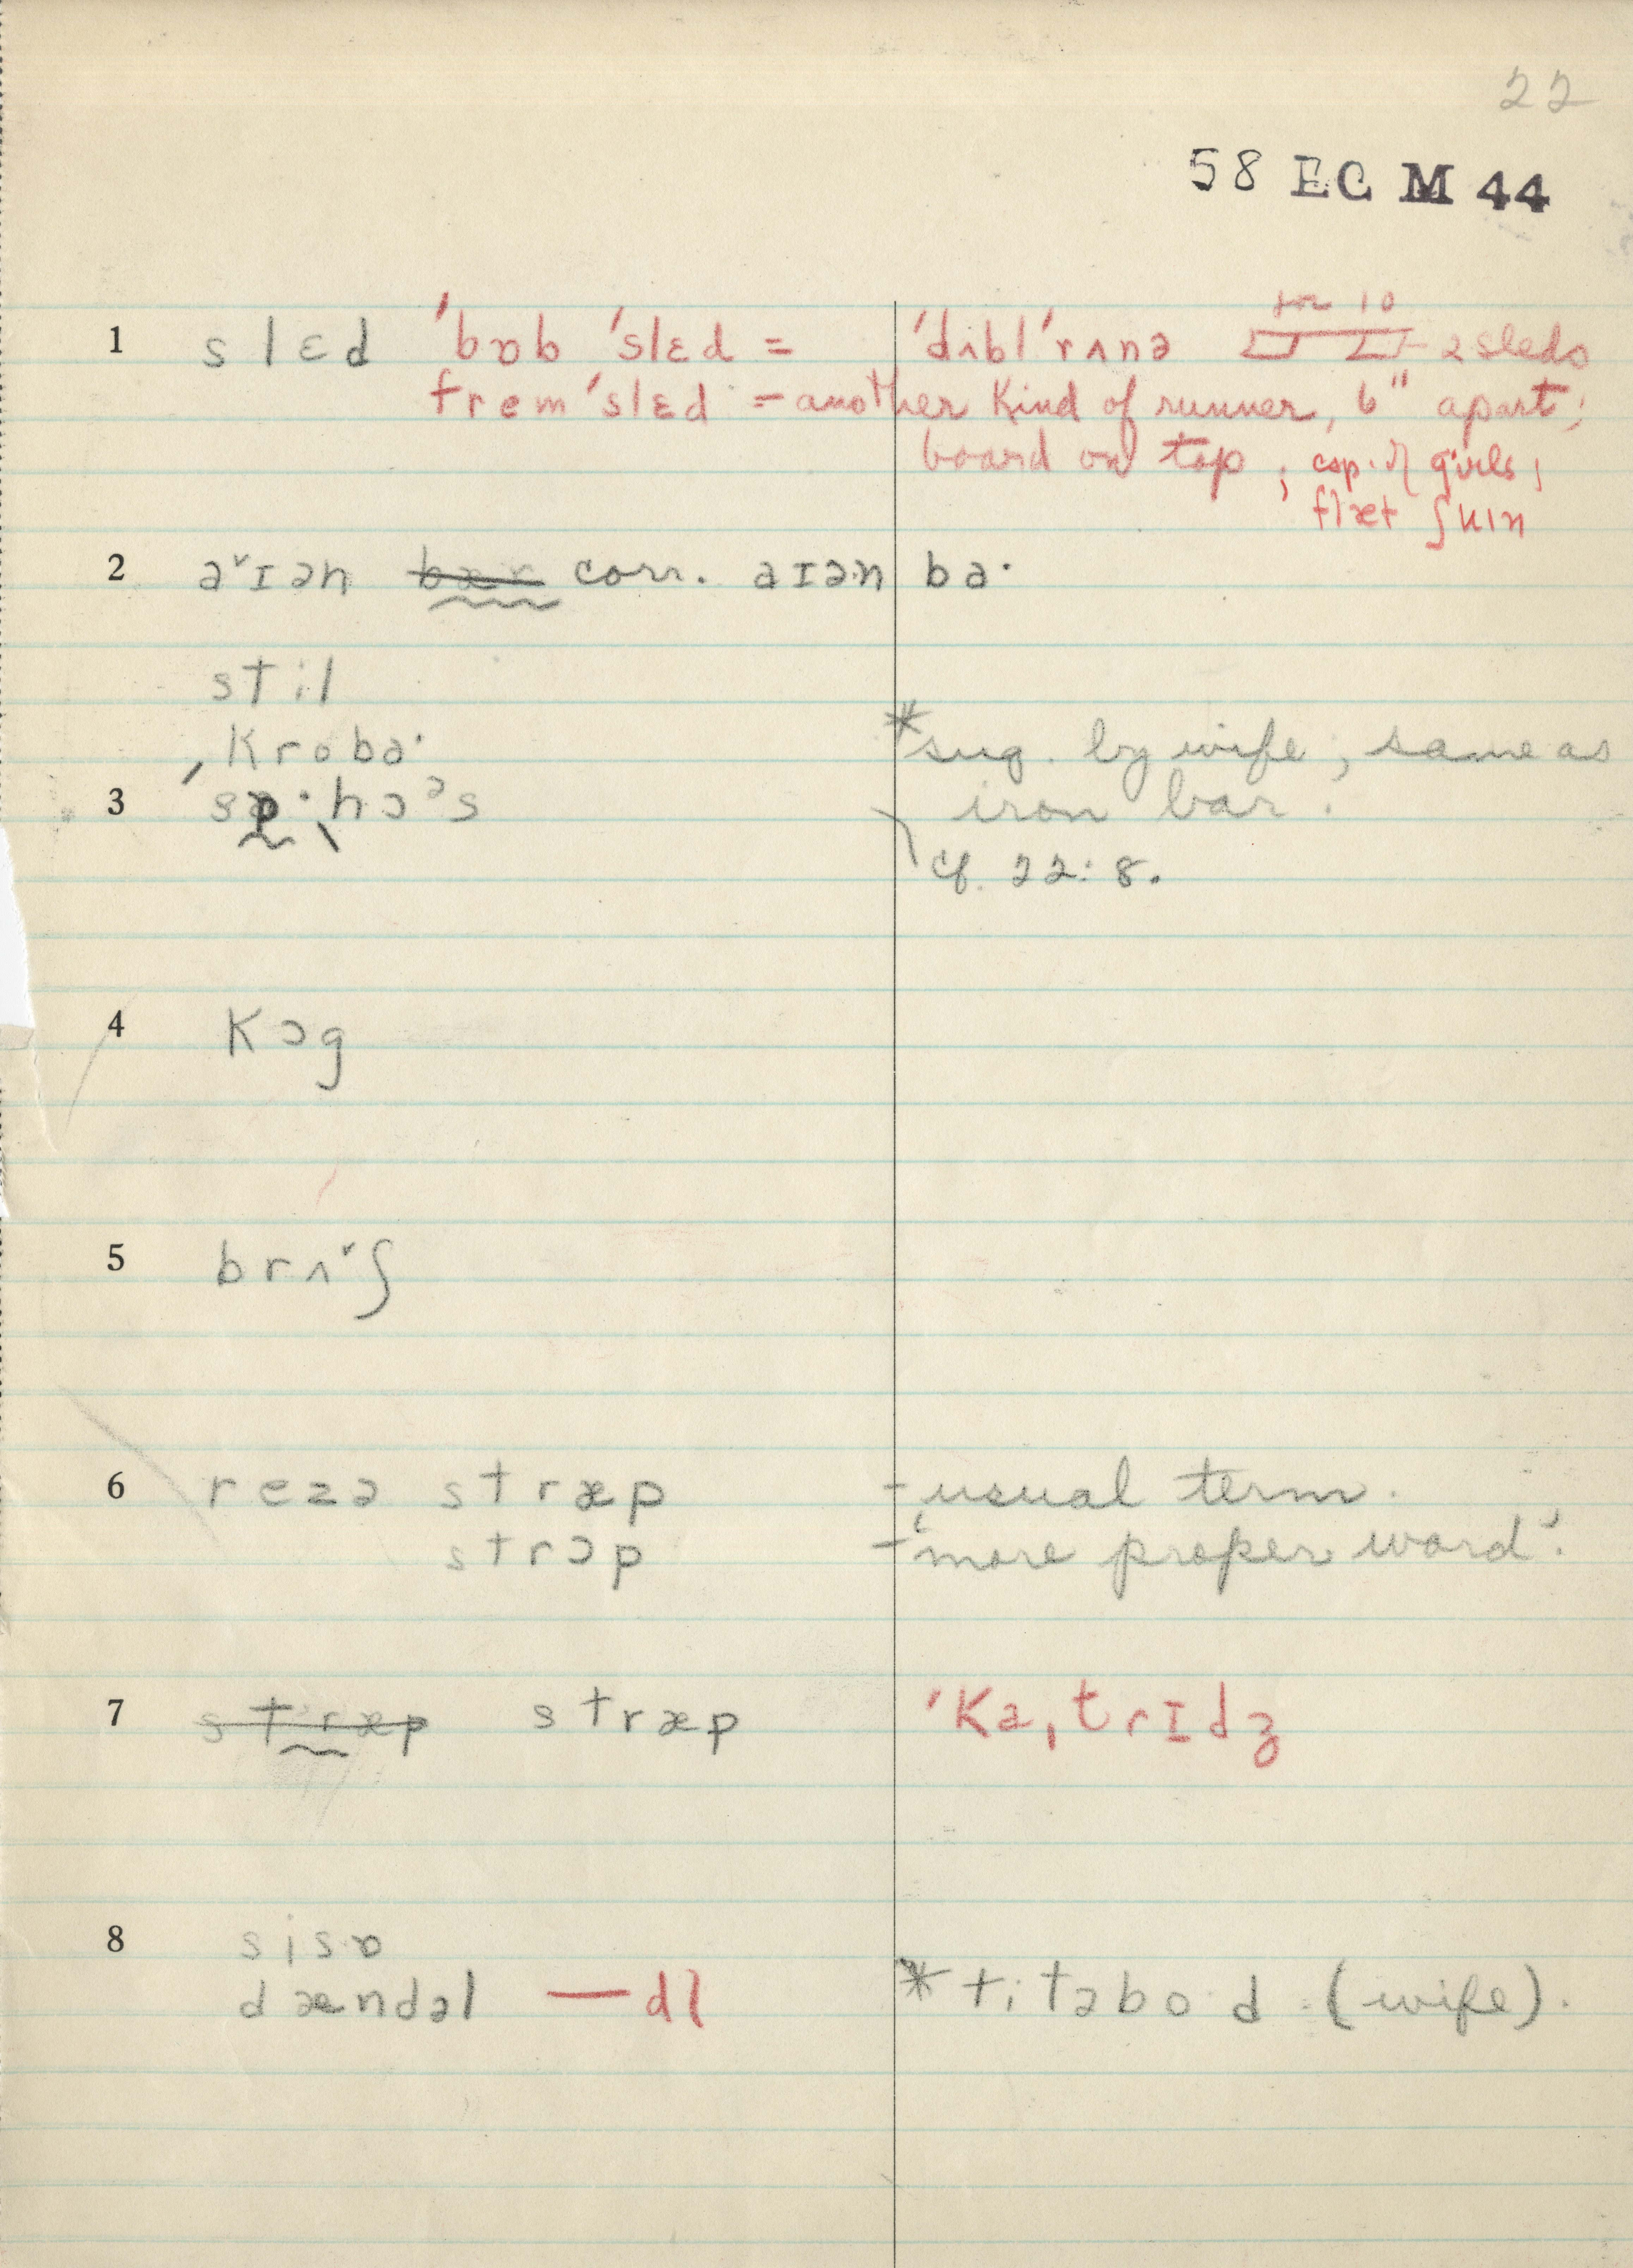 22
58 EC M 44
for 10
1 slɛd ˈbɒb ˈslɛd = ˈdʌblˈrʌnə 2 sleds
fremˈslɛd = another kind of runner, 6" apart;
board on top; esp. of girls;
flæt ʃuɪn
2 a˅ɪən b̶æ̶r̶ corr. aɪən ba·
stil
ˌkroba· * sug. by wife; same as
3 ˈsɒ·ˌhɔᵊs iron bar.
cf. 22:8.
4 kɔg
5 brʌ˅ʃ
6 rezə stræp - usual term.
strɔp - 'more proper word'.
7 s̶t̶r̶æ̶p̶ stræp ˈkaˌtrɪdʒ
8 sisɒ
dændəl —dl * titəbo·d (wife).